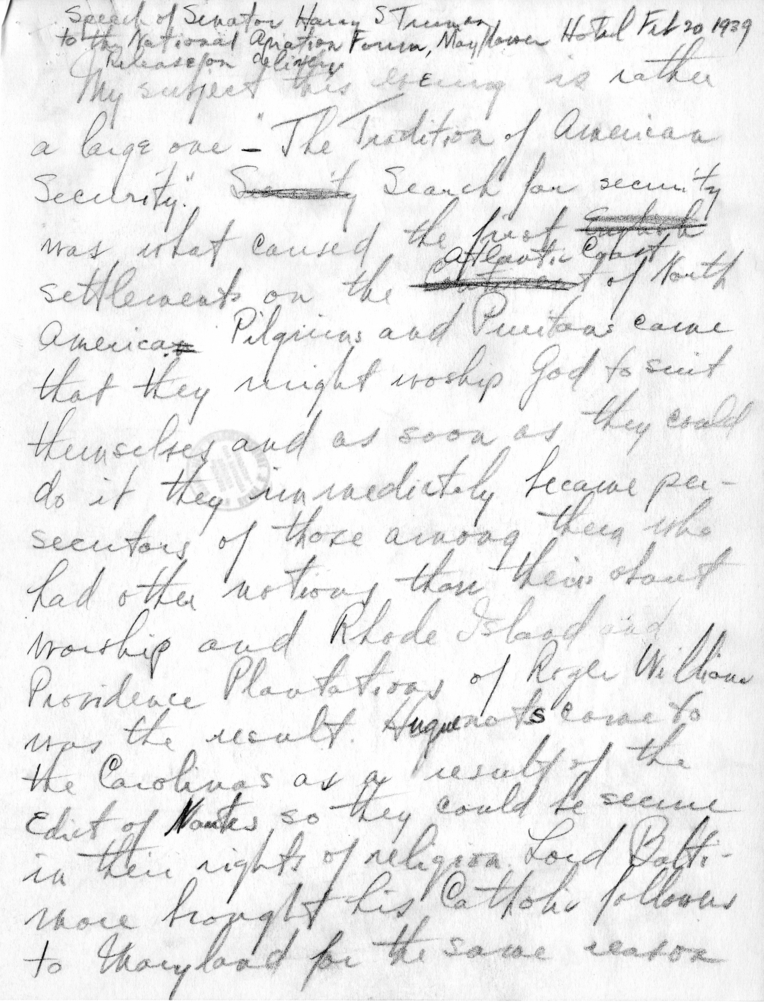 Speech of Senator Harry S Truman
to the National Aviation Forum, Mayflower Hotel Feb 20 1939
Release on delivery
My subject this evening is rather
a large one – "The Tradition of American
Security." Security Search for security
was what caused the first English
Atlantic Coast
settlements on the continent of North
America. Pilgrims and Puritans came
that they might woship God to suit
themselves and as soon as they could
do it they immediately became per-
secutors of those among them who
had other notions than theirs about
worship and Rhode Island and
Providence Plantations of Roger Williams
was the result. Huguenots came to
the Carolinas as a result of the
Edict of Nantes so they could be secure
in their rights of religion. Lord Balti-
more brought his Catholic followers
to Maryland for the same reason